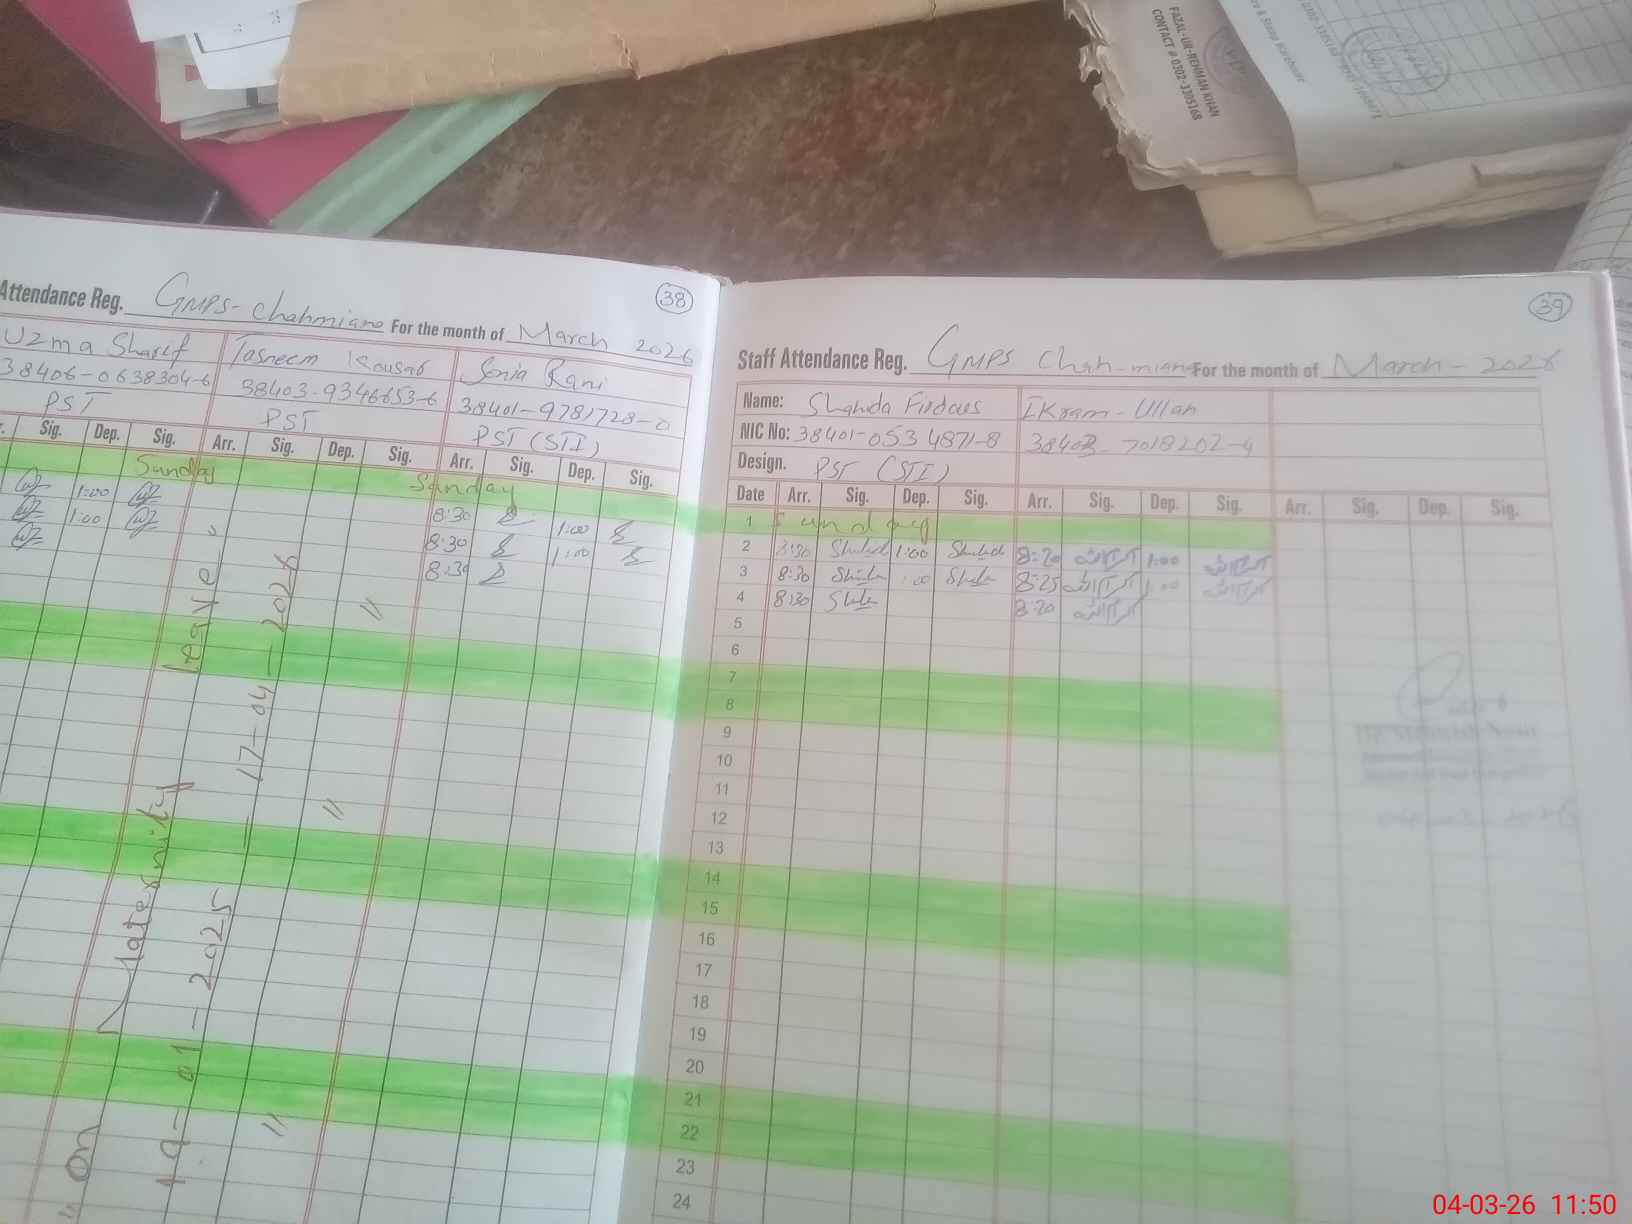 FAZAL-UR-REHMAN KHAN
CONTACT # 0302-3305168
Attendance Reg. GMPS- Chahmiano For the month of March 2026
38
Uzma Sharif Tasneem Kousar Sonia Rani
38406-0638304-6 38403-9346653-6 38401-9781728-
PST PST PST (STI)
Sig. Dep. Sig. Arr. Sig. Dep. Sig. Arr. Sig. Dep. Sig.
Sunday Sunday
1:00 8:30 1:00
1:00 8:30 1:00
8:30
on Maternity leave
19-01-2025 = 17-04-2026
39
Staff Attendance Reg. GMPS Chah-miano For the month of March-2026
Name: Shahida Firdous Ikram-Ullah
NIC No: 38401-0534871-8 38403-7018202-9
Design. PST (STI)
Date Arr. Sig. Dep. Sig. Arr. Sig. Dep. Sig. Arr. Sig. Dep. Sig.
1 Sunday
2 8:30 1:00 8:20 1:00
3 8:30 :00 8:25 1:00
4 8:30 8:20
5
6
7
8
9
10
11
12
13
14
15
16
17
18
19
20
21
22
23
24
04-03-26 11:50